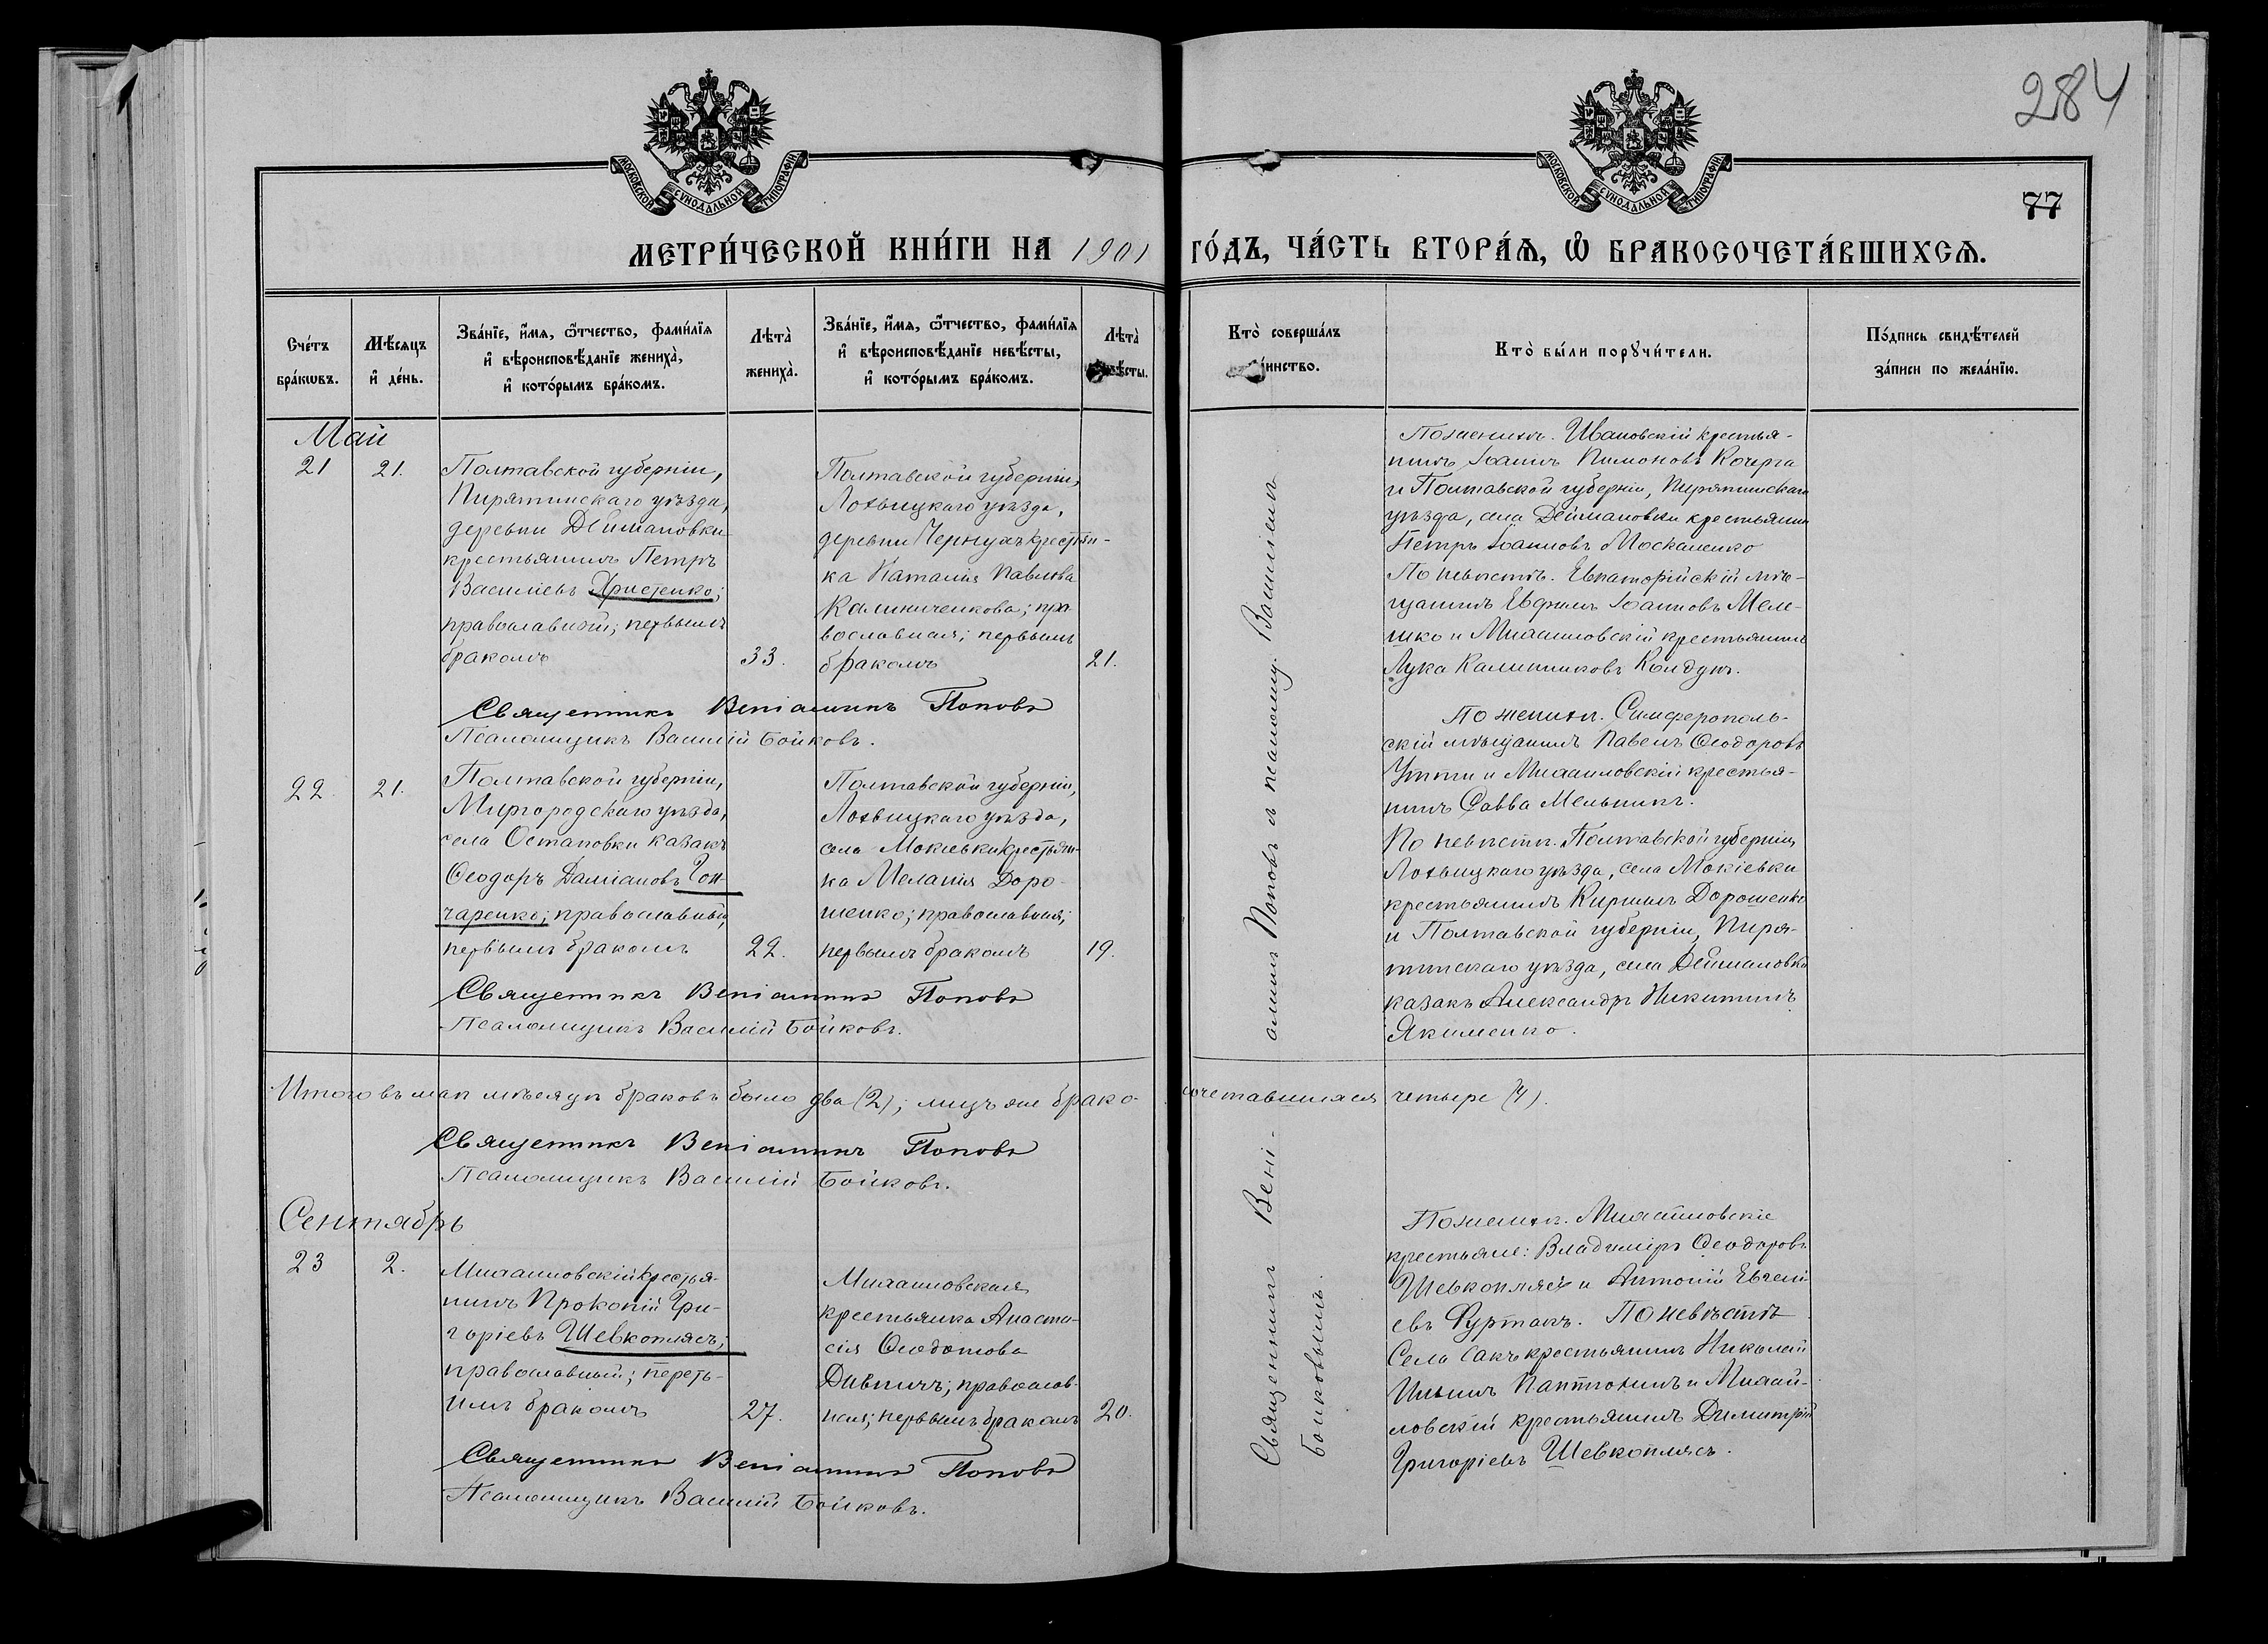 284
77
МОСКОВСКОЙ СѴНОДАЛЬНОЙ ТИПОГРАФІИ
МОСКОВСКОЙ СѴНОДАЛЬНОЙ ТИПОГРАФІИ
МЕТРИ́ЧЕСКОЙ КНИ́ГИ НА 1901 ГО́ДЪ, ЧА́СТЬ ВТОРА́Ѧ, Ѽ БРАКОСОЧЕТА́ВШИХСѦ.
Сче́тъ бра́кѡвъ.
Мѣ́сяцъ и҆ де́нь.
Зва́нїе, и҆́мѧ, ѻ҆́тчество, фами́лїѧ
и҆ вѣроисповѣ́данїе жениха̀,
и҆ кото́рымъ бра́комъ.
Лѣта̀ жениха̀.
Зва́нїе, и҆́мѧ, ѻ҆́тчество, фами́лїѧ
и҆ вѣроисповѣ́данїе невѣ́сты,
и҆ кото́рымъ бра́комъ.
Лѣта̀ невѣ́сты.
Кто̀ соверша́лъ
таинство.
Кто̀ бы́ли порꙋчи́тели.
По́дпись свидѣ́телей
за́писи по жела́нїю.
Май
21 21.
Полтавской губерніи,
Пирятинскаго уѣзда,
деревни Деймановки
крестьянинъ Петръ
Василіевъ Христенко;
православный; первымъ
бракомъ 33.
Полтавской губерніи,
Лохвицкаго уѣзда,
деревни Чернухъ крестьян-
ка Наталія Павлова
Калиниченкова; пра-
вославная; первымъ
бракомъ 21.
По женихѣ. Ивановскій крестья-
нинъ Іоаннъ Пимоновъ Кочерга
и Полтавской губерніи, Пирятинскаго
уѣзда, села Деймановки крестьянинъ
Петръ Іоанновъ Москаленко
По невѣстѣ. Евпаторійскій мѣ-
щанинъ Евфимъ Іоанновъ Меле-
шко и Михайловскій крестьянинъ
Лука Калинниковъ Колдунъ.
Священникъ Веніаминъ Поповъ
Псаломщикъ Василій Бойковъ.
22. 21.
Полтавской губерніи,
Миргородскаго уѣзда,
села Остаповки казакъ
Ѳеодоръ Даміановъ Гон-
чаренко; православный,
первымъ бракомъ 22.
Полтавской губерніи,
Лохвицкаго уѣзда,
села Мокіевки крестьян-
ка Меланія Доро-
шенко; православная;
первымъ бракомъ 19.
По женихѣ. Симферополь-
скій мѣщанинъ Павелъ Ѳеодоровъ
и Михайловскій крестья-
нинъ Савва Мельникъ.
По невѣстѣ. Полтавской губерніи,
Лохвицкаго уѣзда, села Мокіевки
крестьянинъ Кириллъ Дорошенко
и Полтавской губерніи, Пиря-
тинскаго уѣзда, села Деймановки
казакъ Александръ Никитинъ
Якименко.
Священникъ Веніаминъ Поповъ
Псаломщикъ Василій Бойковъ.
Итого въ маѣ мѣсяцѣ браковъ было два (2); лицъ же брако-
сочетавшихся четыре (4).
Священникъ Веніаминъ Поповъ
Псаломщикъ Василій Бойковъ.
Сентябрь
23 2.
Михайловскій крестья-
нинъ Прокопій Гри-
горіевъ Шевкоплясъ;
православный; треть-
имъ бракомъ 27.
Михайловская
крестьянка Анаста-
сія Ѳеодотова
Дивничъ; православ-
ная; первымъ бракомъ 20.
По женихѣ. Михайловскіе
крестьяне: Владиміръ Ѳеодоровъ
Шевкоплясъ и Антоній Евгені-
евъ Фурманъ. По невѣстѣ
Села Сакъ крестьянинъ Николай
Ильинъ Паптюхинъ и Михай-
ловскій крестьянинъ Димитрій
Григоріевъ Шевкоплясъ.
Священникъ Веніаминъ Поповъ
Псаломщикъ Василій Бойковъ.
Священникъ Вені-аминъ Поповъ съ псаломщ. Василіемъ
Бойковымъ.